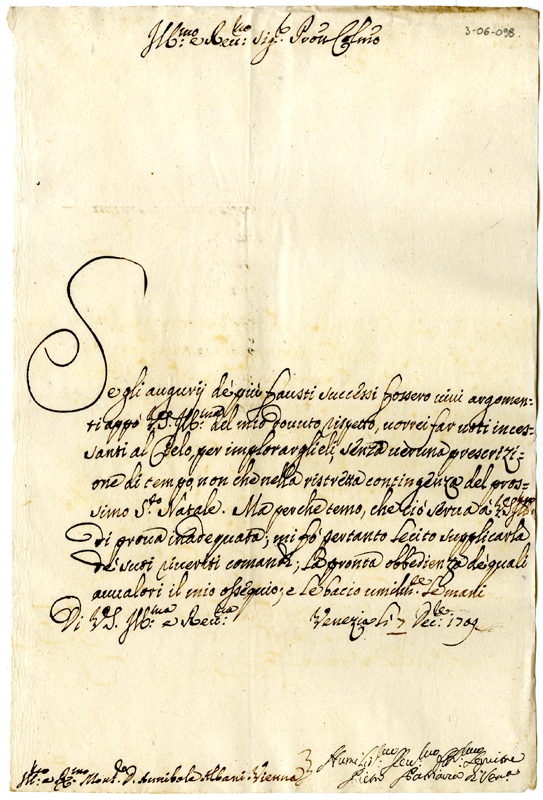 3-06-098.
Ill:mo e Reu:mo Sig:r Pron Colmo
Se gli augurij de più fausti successi fossero uiui argomen=
ti appo V.S. Ill:ma del mio douuto rispetto, uorrei far uoti inces=
santi al Cielo, per implorarglieli, senza ueruna prescrizi=
one di tempo, non che nella ristretta contingenza del pros=
simo S:to Natale. Ma perche temo, che ciò serua à V.S. Ill:ma
di proua inadequata; mi fò pertanto lecito supplicarla
de suoi riueriti comandi, la pronta obbedienza de quali
auualori il mio ossequio; e le bacio umilm:te le mani
Di V.S. Ill:ma e Reu:ma Venezia li 7 Dec:bre 1709
Ill:mo e R:mo Mons:r D. Annibale Albani Vienna
Humilis:mo Seu:mo
Pietro